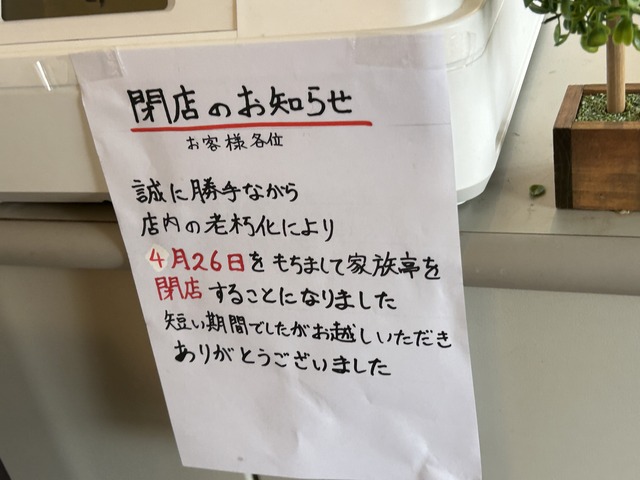 閉店のお知らせ
お客様各位
誠に勝手ながら
店内の老朽化により
4月26日をもちまして家族亭を
閉店することになりました
短い期間でしたがお越しいただき
ありがとうございました